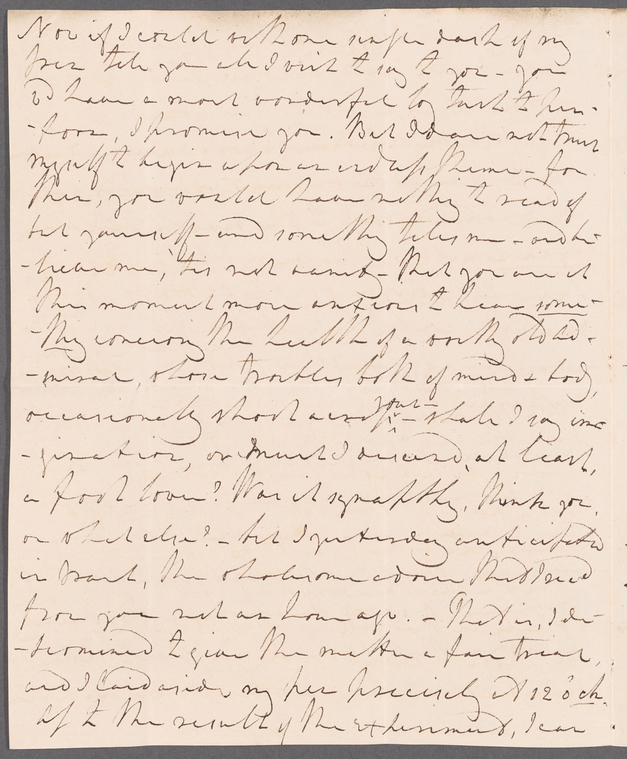 Now if I could with one single dash of my
pen tell you all I wish to say to you - you
'd have a most wonderful long task to per-
-form, I promise you. But I dare not trust
myself to begin upon an endless theme - for
then, you would have nothing to read of
but yourself - and something tells me - and be-
-lieve me, 'tis not vanity - that you are at
this moment more anxious to hear some-
-thing concerning the health of a worthy old Ad-
-miral, whose troubles both of mind & body,
occasionally shoot across your - shall I say ima-
-gination, or must I descend, at least,
a foot lower? Was it sympathy, think you,
or what else? - but I yesterday anticipated
in part, the wholesome advice that I rec'd
from you not an hour ago. - That is, I de-
-termined to give the matter a fair trial,
and I laid aside my pen precisely at 12 o'ck.
As to the result of the experiment, I can